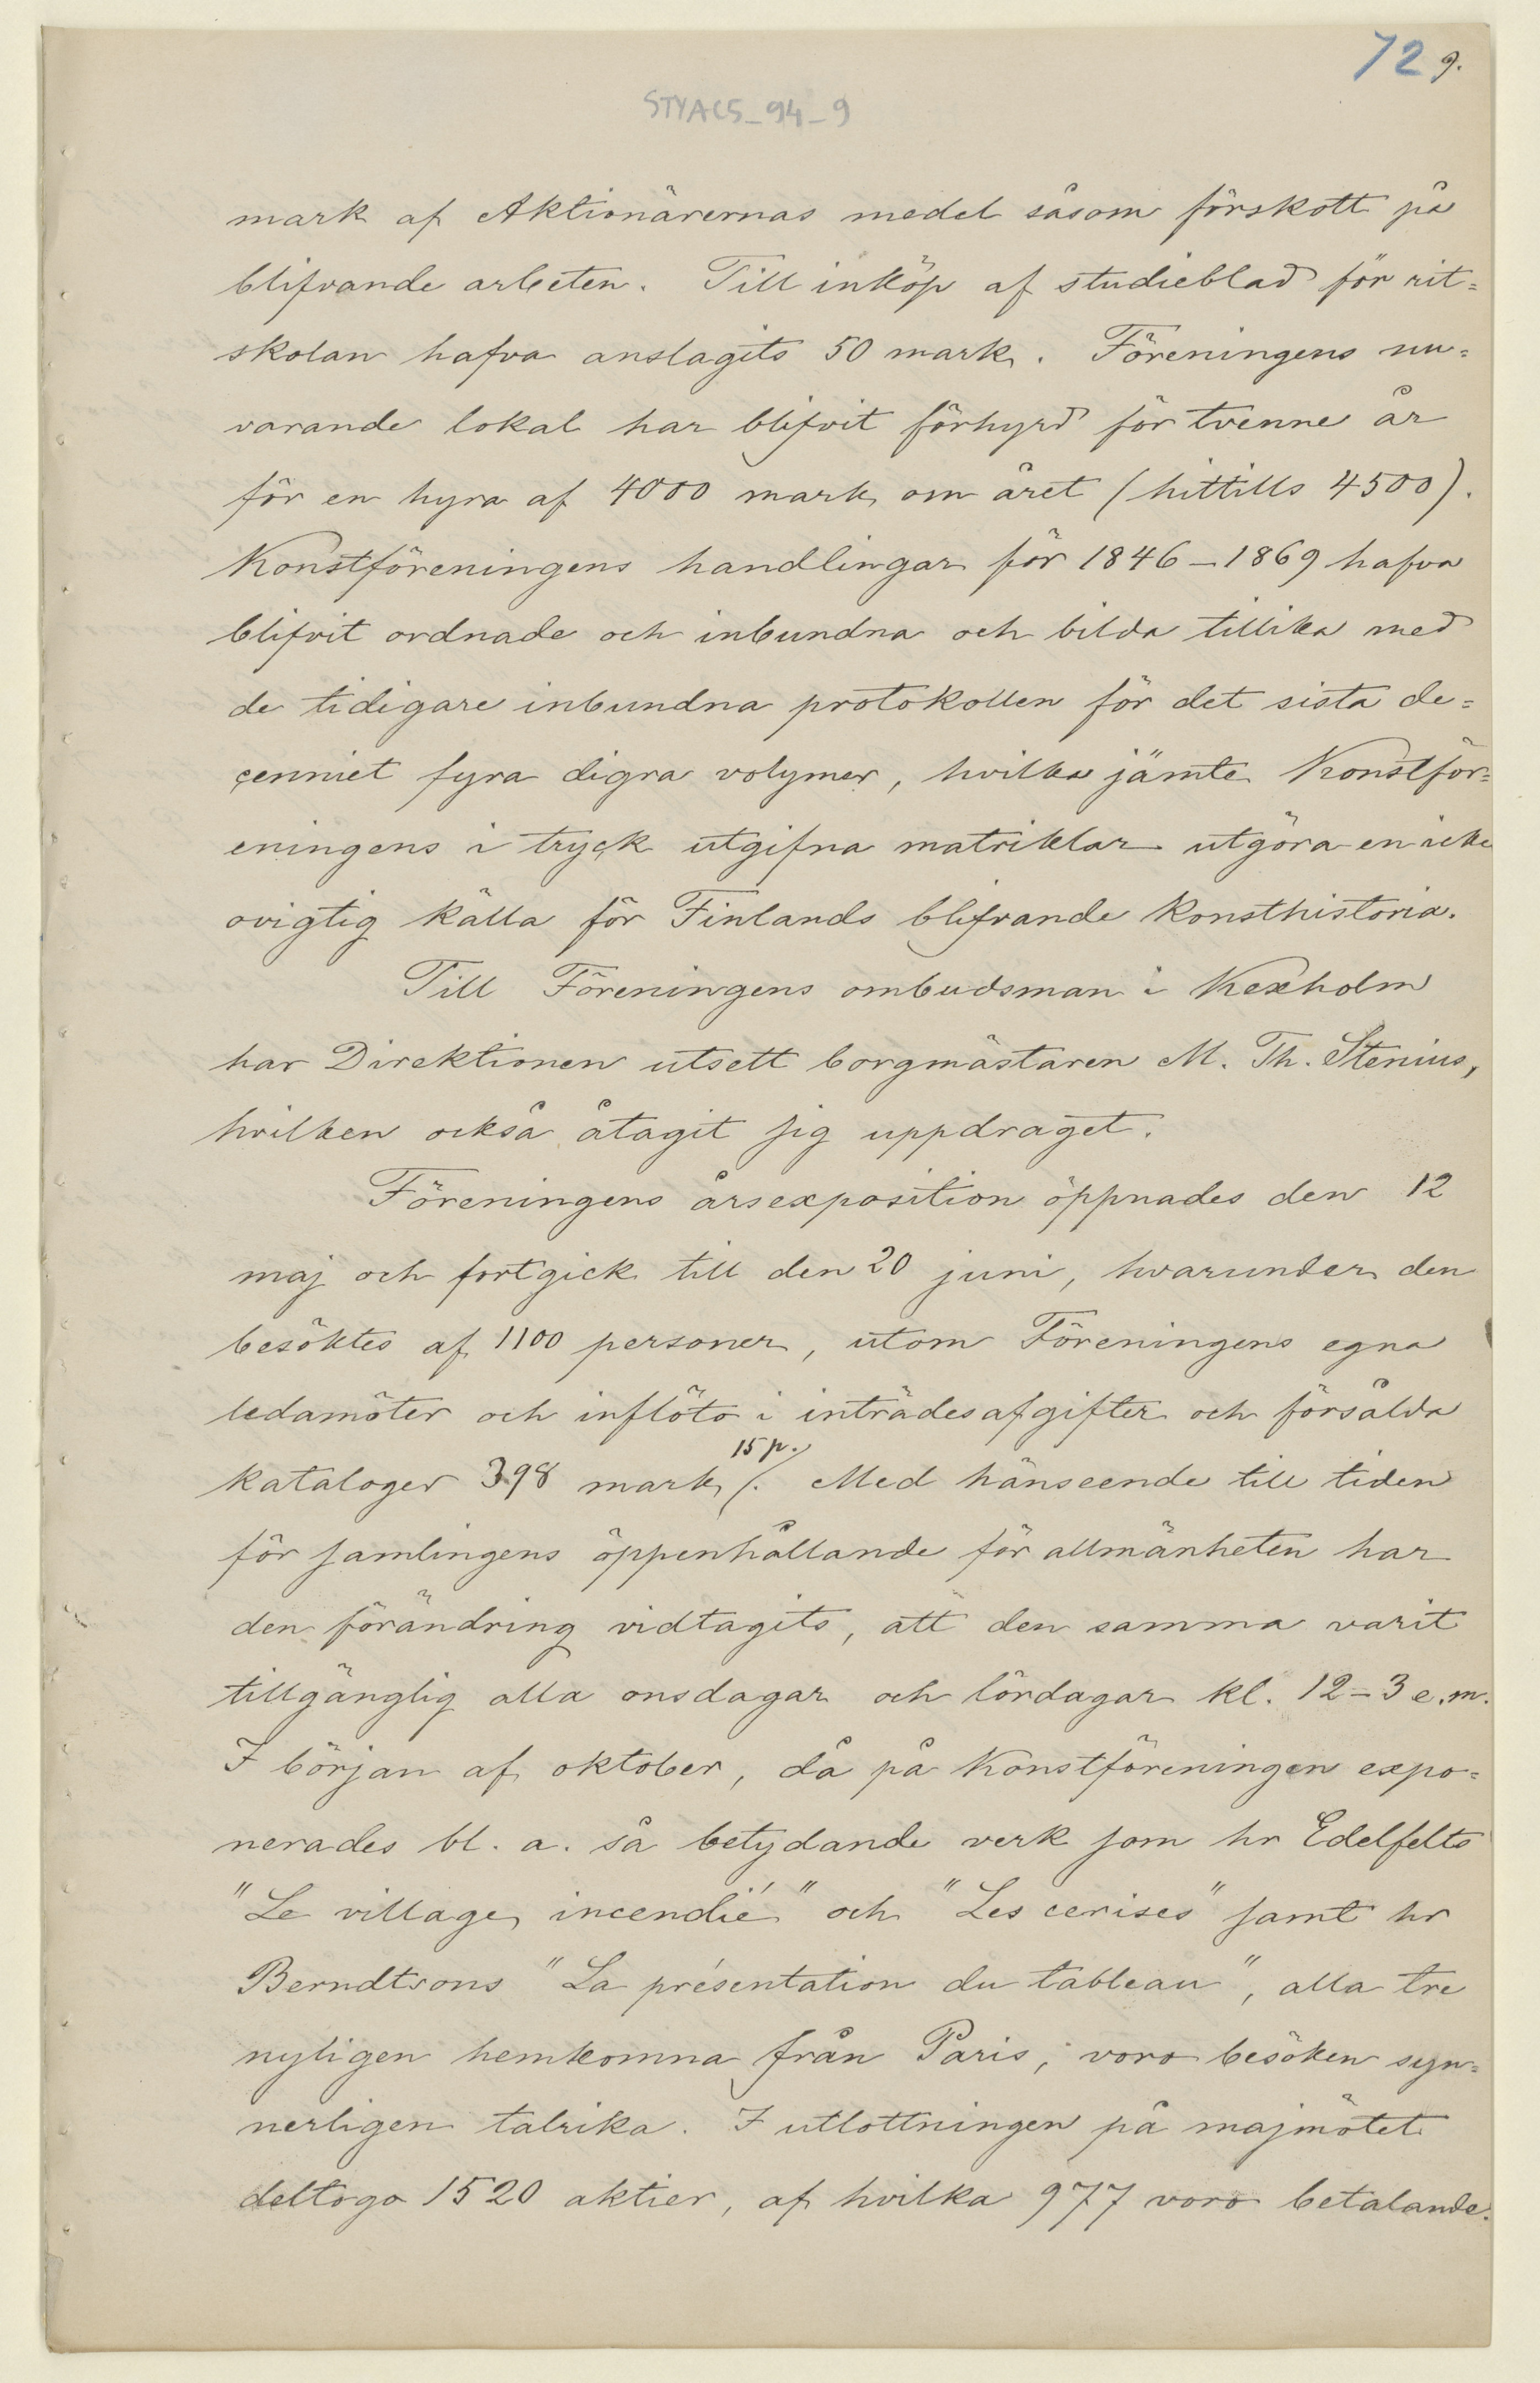 72 9.
STYAC5_94_9
mark af Aktionärernas medel såsom förskott på
blifvande arbeten. Till inköp af studieblad för rit=
skolan hafva anslagits 50 mark. Föreningens nu=
varande lokal har blifvit förhyrd för tvenne år
för en hyra af 4000 mark om året (hittills 4500).
Konstföreningens handlingar för 1846–1869 hafva
blifvit ordnade och inbundna och bilda tillika med
de tidigare inbundna protokollen för det sista de=
cenniet fyra digra volymer, hvilka jämte Konstför=
eningens i tryck utgifna matriklar utgöra en icke
ovigtig källa för Finlands blifvande konsthistoria.
Till Föreningens ombudsman i Kexholm
har Direktionen utsett borgmästaren M. Th. Stenius,
hvilken också åtagit sig uppdraget.
Föreningens årsexposition öppnades den 12
maj och fortgick till den 20 juni, hvarunder den
besöktes af 1100 personer, utom Föreningens egna
ledamöter och inflöto i inträdesafgifter och försålda
15 p.
kataloger 398 mark /. Med hänseende till tiden
för samlingens öppenhållande för allmänheten har
den förändring vidtagits, att den samma varit
tillgänglig alla onsdagar och lördagar kl. 12–3 e.m.
I början af oktober, då på Konstföreningen expo=
nerades bl. a. så betydande verk som hr Edelfelts
"Le village incendié" och "Les cerises" samt hr
Berndtsons "La présentation du tableau", alla tre
nyligen hemkomna från Paris, voro besöken syn=
nerligen talrika. I utlottningen på majmötet
deltogo 1520 aktier, af hvilka 977 voro betalande.